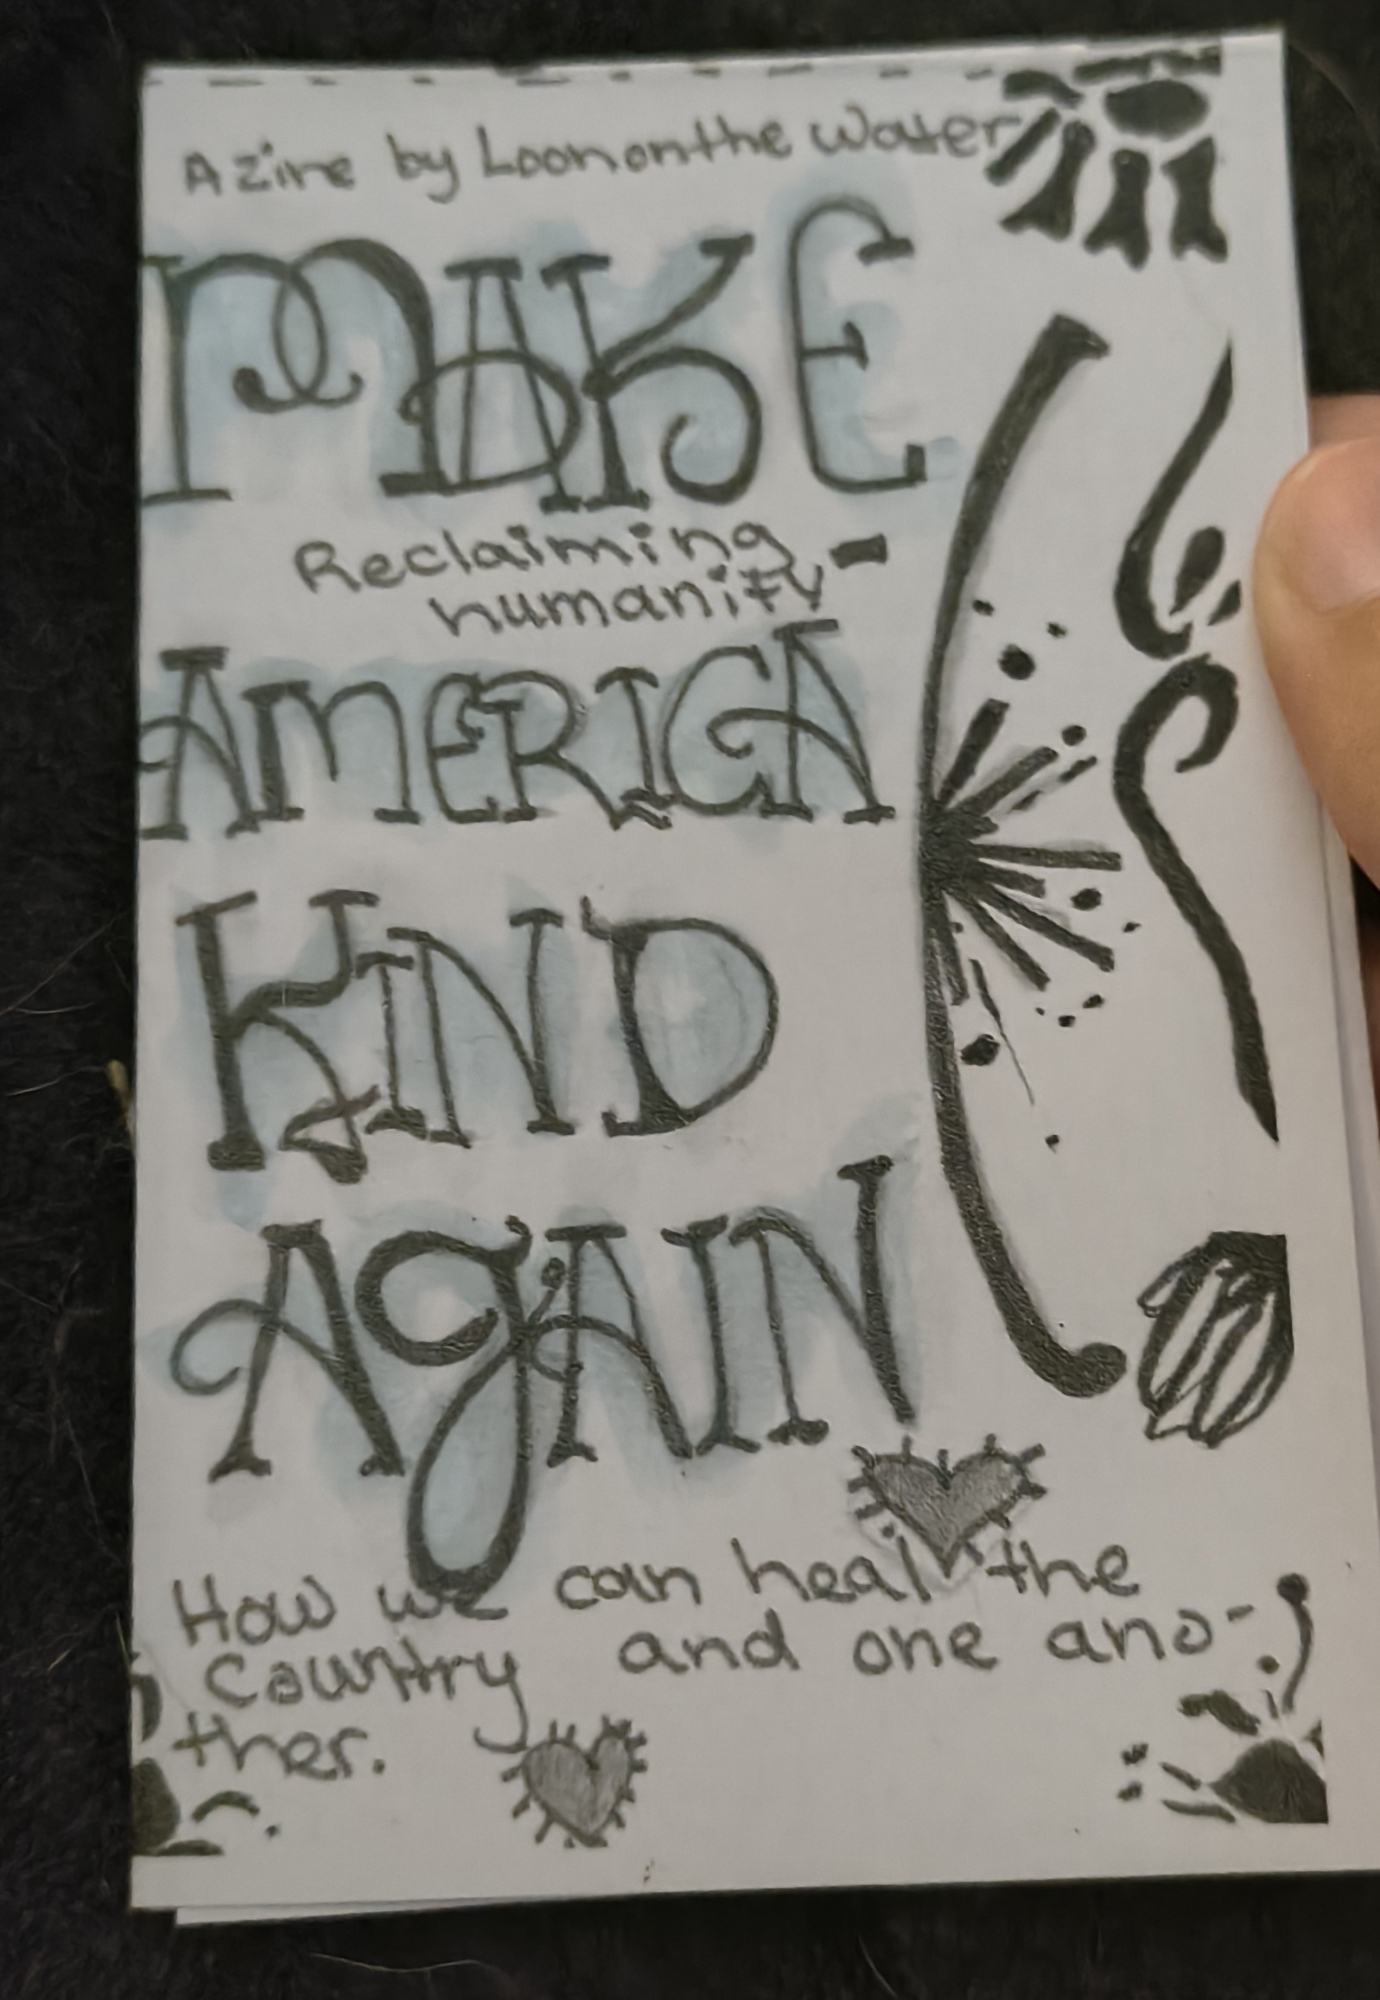 A zine by Loononthe Water
MAKE
Reclaiming -
humanity
AMERICA
KIND
AGAIN
How we can heal the
Country and one ano-
ther.